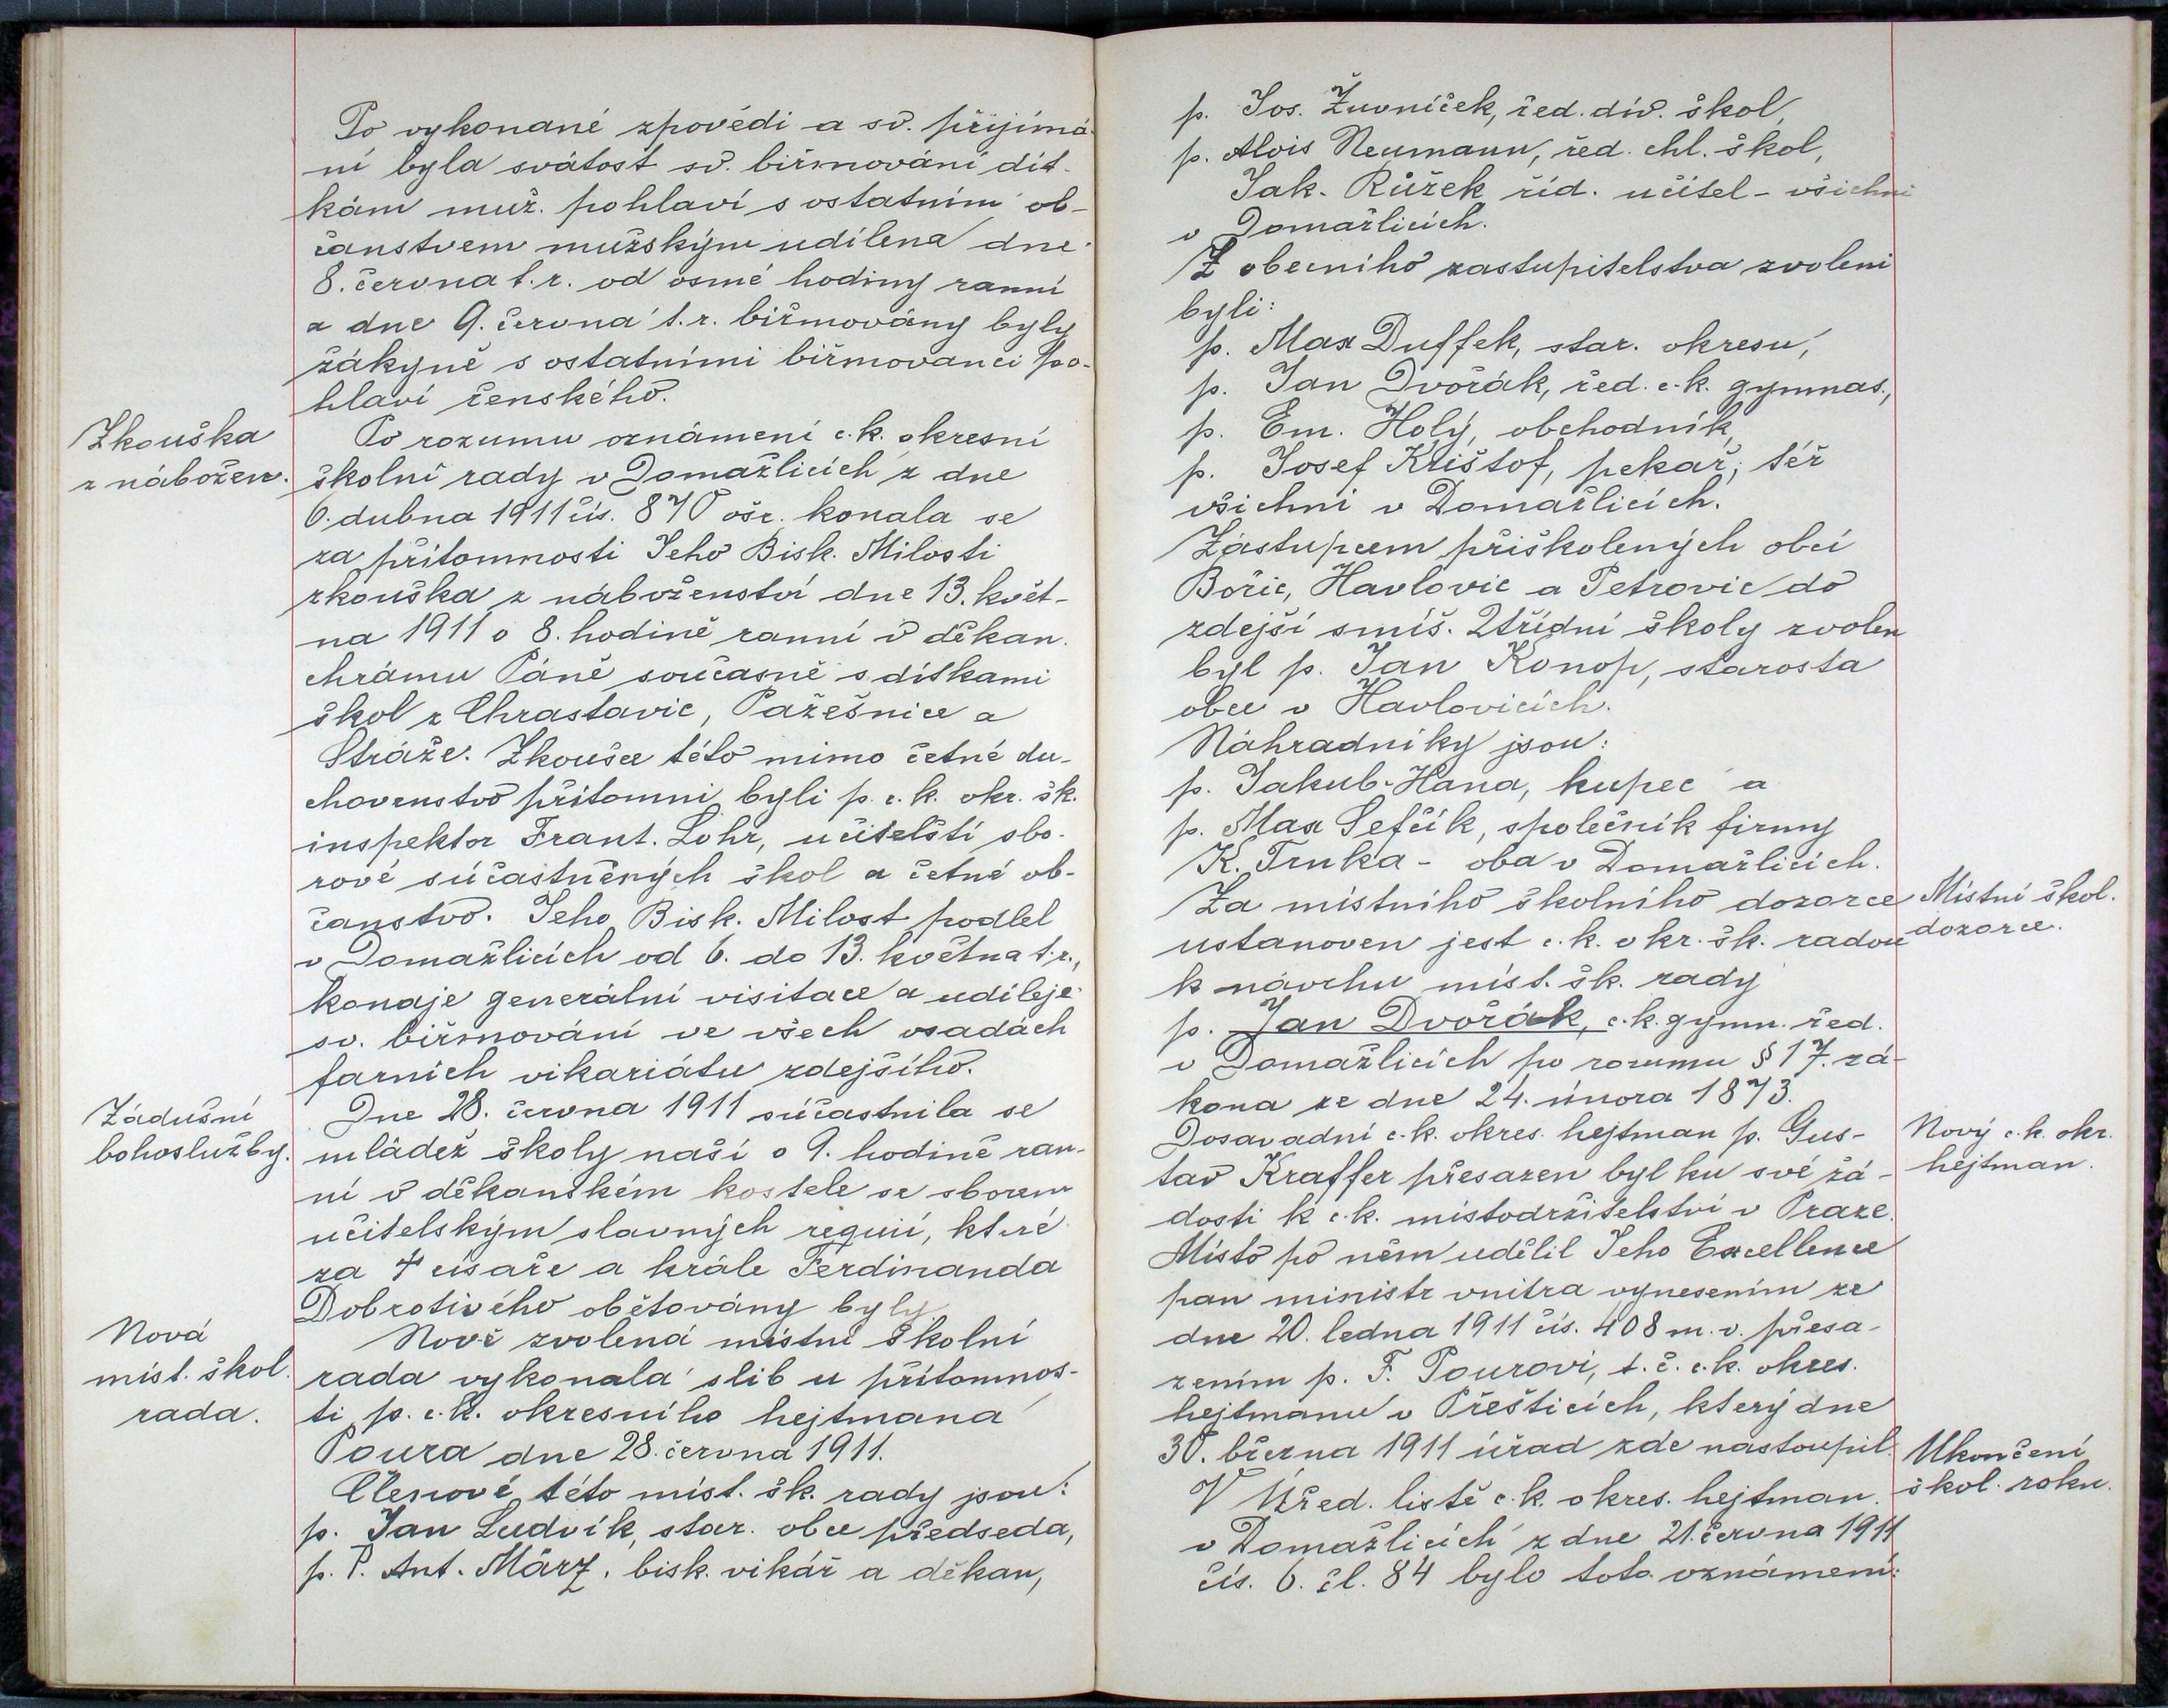 Po vykonané zpovědi a sv. přijímá-
ní byla svátost sv. biřmování dít-
kám muž. pohlaví s ostatním ob-
čanstvem mužským udílena dne
8. června t. r. od osmé hodiny ranní
a dne 9. června t. r. biřmovány byly
žákyně s ostatními biřmovanci po-
hlaví ženského.
Zkouška
z nábožen.
Po rozumu oznámení c. k. okresní
školní rady v Domažlicích z dne
6. dubna 1911 čís. 870 ošr. konala se
za přítomnosti Jeho Bisk. Milosti
zkouška z náboženství dne 13. květ-
na 1911 o 8. hodině ranní v děkan.
chrámu Páně současně s dítkami
škol z Chrastavic, Pažešnice a
Stráže. Zkoušce této mimo četné du-
chovenstvo přítomni byli p. c. k. okr. šk.
inspektor Frant. Lohr, učitelští sbo-
rové súčastněných škol a četné ob-
čanstvo. Jeho Bisk. Milost podlel
v Domažlicích od 6. do 13. května t. r.,
konaje generální visitace a udíleje
sv. biřmování ve všech osadách
farních vikariátu zdejšího.
Zádušní
bohoslužby.
Dne 28. června 1911 súčastnila se
mládež školy naší o 9. hodině ran-
ní v děkanském kostele se sborem
učitelským slavných requií, které
za † císaře a krále Ferdinanda
Dobrotivého obětovány byly.
Nová
míst. škol.
rada.
Nově zvolená místní školní
rada vykonala slib u přítomnos-
ti p. c. k. okresního hejtmana
Poura dne 28. června 1911.
Členové této míst. šk. rady jsou:
p. Jan Ludvík, star. obce předseda,
p. P. Ant. März, bisk. vikář a děkan,
p. Jos. Žuvníček, řed. dív. škol,
p. Alois Neumann, řed. chl. škol,
Jak. Růžek říd. učitel - všichni
v Domažlicích.
Z obecního zastupitelstva zvoleni
byli:
p. Max Duffek, star. okresu,
p. Jan Dvořák, řed. c. k. gymnas.,
p. Em. Holý, obchodník,
p. Josef Krištof, pekař, též
všichni v Domažlicích.
Zástupcem přiškolených obcí
Bořic, Havlovic a Petrovic do
zdejší smíš. 2třídní školy zvolen
byl p. Jan Konop, starosta
obce v Havlovicích.
Náhradníky jsou:
p. Jakub Hana, kupec a
p. Max Sefčík, společník firmy
K. Trnka - oba v Domažlicích.
Místní škol.
dozorce.
Za místního školního dozorce
ustanoven jest c. k. okr. šk. radou
k návrhu míst. šk. rady
p. Jan Dvořák, c. k. gymn. řed.
v Domažlicích po rozumu § 17. zá-
kona ze dne 24. února 1873.
Nový c. k. okr.
hejtman.
Dosavadní c. k. okres. hejtman p. Gus-
tav Kraffer přesazen byl ku své žá-
dosti k c. k. místodržitelství v Praze.
Místo po něm udělil Jeho Excellence
pan ministr vnitra vynesením ze
dne 20. ledna 1911 čís. 408 m. v. přesa-
zením p. F. Pourovi, t. č. c. k. okres.
hejtmanu v Přešticích, který dne
30. března 1911 úřad zde nastoupil.
Ukončení
škol. roku.
V Úřed. listě c. k. okres. hejtman.
v Domažlicích z dne 21. června 1911
čís. 6. čl. 84 bylo toto oznámení: